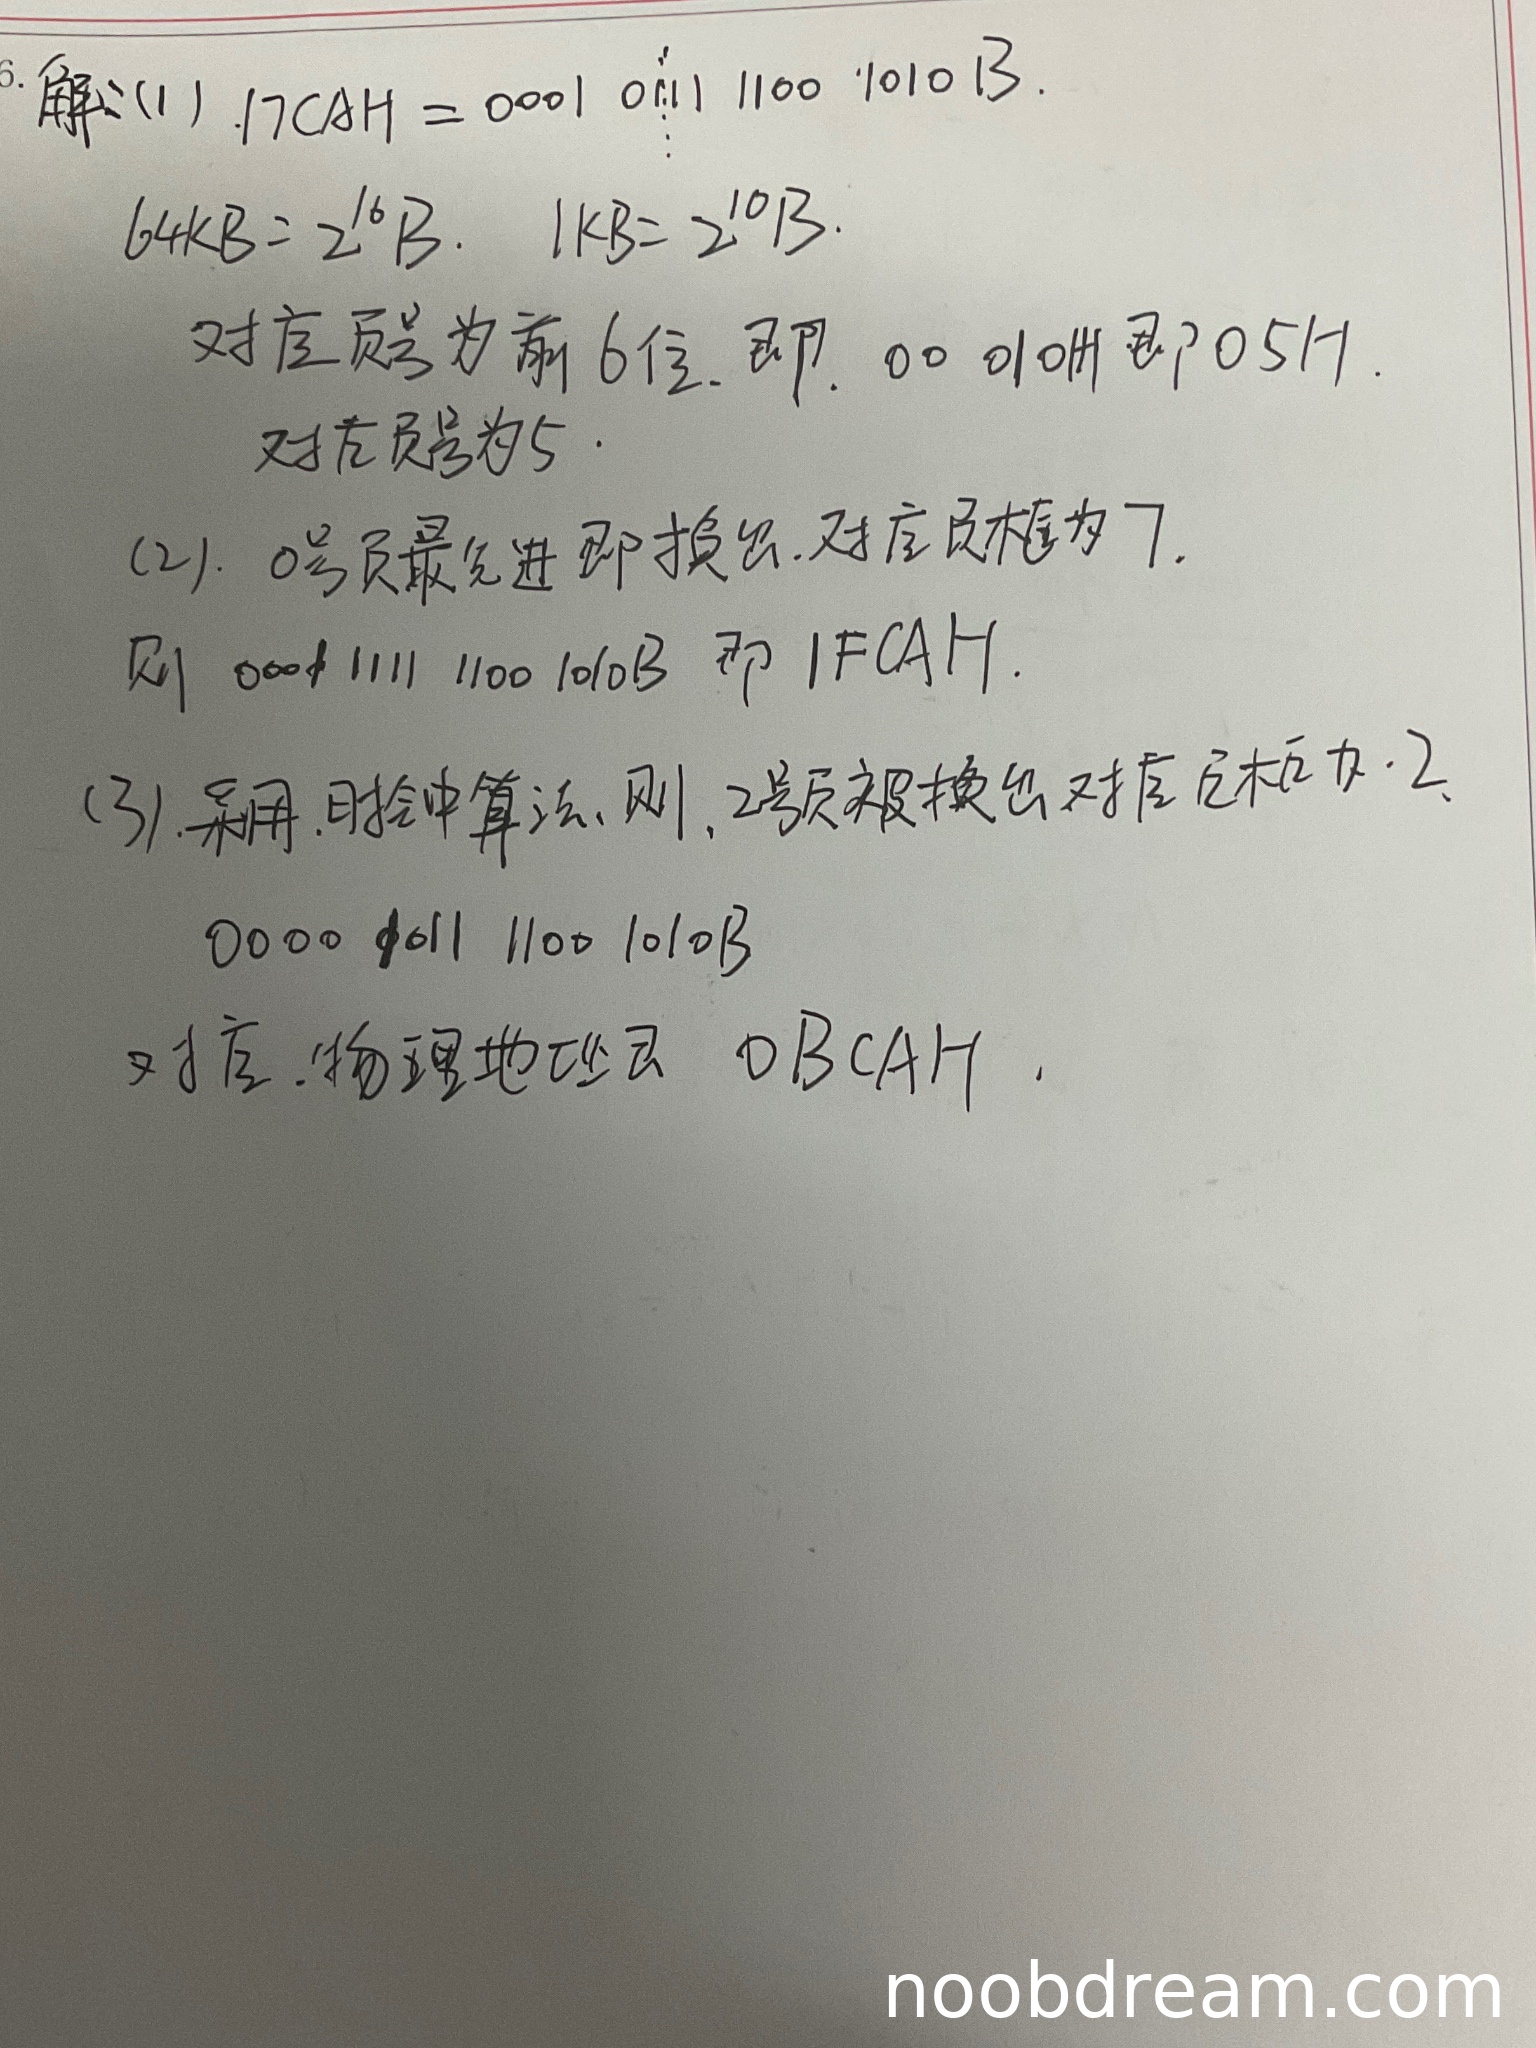 6. 解:(1) 17CAH = 0001 0111 1100 1010B.
64KB = 2^16B. 1KB = 2^10B.
对应页号为前6位. 即. 00 0101 即05H.
对应页号为5.
(2). 0号页最先进 即换出. 对应页框为7.
则 0001 1111 1100 1010B 即 1FCAH.
(3). 采用. 时钟算法, 则, 2号页被换出 对应页框为. 2.
0000 1011 1100 1010B
对应. 物理地址 0BCAH.
noobdream.com